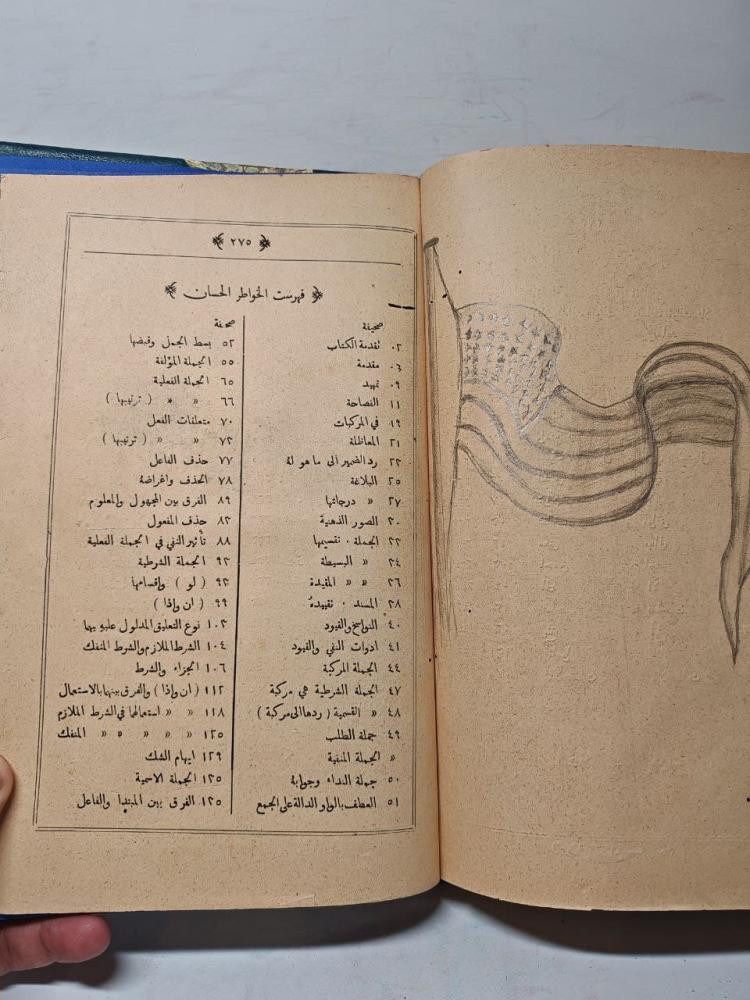 ﴿ ٢٧٥ ﴾
﴿ فهرست الخواطر الحسان ﴾
صحيفة
٠٢ تقدمة الكتاب
٠٦ مقدمة
٠٩ تمهيد
١١ الفصاحة
١٩ في المركبات
٢١ المعاظلة
٢٢ رد الضمير الى ما هو له
٢٥ البلاغة
٢٧ » درجاتها
٣٠ الصور الذهنية
٣٢ الجملة ٠ تقسيمها
٣٤ » البسيطة
٣٦ » » المقيدة
٣٨ المسند ٠ تقييدهُ
٤٠ النواسخ والقيود
٤١ ادوات النفي والقيود
٤٤ الجملة المركبة
٤٧ الجملة الشرطية هي مركبة
٤٨ » القسمية ( ردها الى مركبة )
٤٩ جملة الطلب
» الجملة المنفية
٥٠ جملة النداء وجوابهُ
٥١ العطف بالواو الدالة على الجمع
صحيفة
٥٢ بسط الجمل وقبضها
٥٥ الجملة المؤلفة
٦٥ الجملة الفعلية
٦٦ » » ( ترتيبها )
٧٠ متعلقات الفعل
٧٢ » » ( ترتيبها )
٧٧ حذف الفاعل
٧٨ الحذف واغراضهُ
٨٩ الفرق بين المجهول والمعلوم
٨٢ حذف المفعول
٨٨ تأثير النفي في الجملة الفعلية
٩٢ الجملة الشرطية
٩٣ ( لو ) واقسامها
٩٩ ( ان واذا )
١٠٢ نوع التعليق المدلول عليهِ بها
١٠٤ الشرط الملازم والشرط المنفك
١٠٦ الجزاء والشرط
١١٢ ( ان واذا ) والفرق بينها بالاستعمال
١١٨ » » استعمالها في الشرط الملازم
١٢٥ » » » » » المنفك
١٢٩ ايهام الشك
١٣٥ الجملة الاسمية
١٣٥ الفرق بين المبتدإ والفاعل